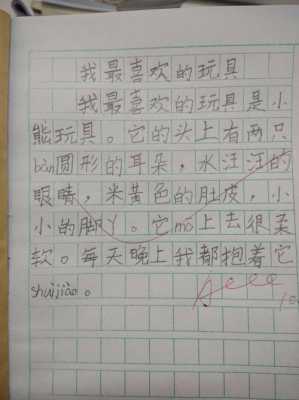 我最喜欢的玩具
我最喜欢的玩具是小
熊玩具。它的头上有两只
bàn圆形的耳朵，水汪汪的
眼睛，米黄色的肚皮，小
小的脚丫。它mō上去很柔
软。每天晚上我都抱着它
shuìjiào。